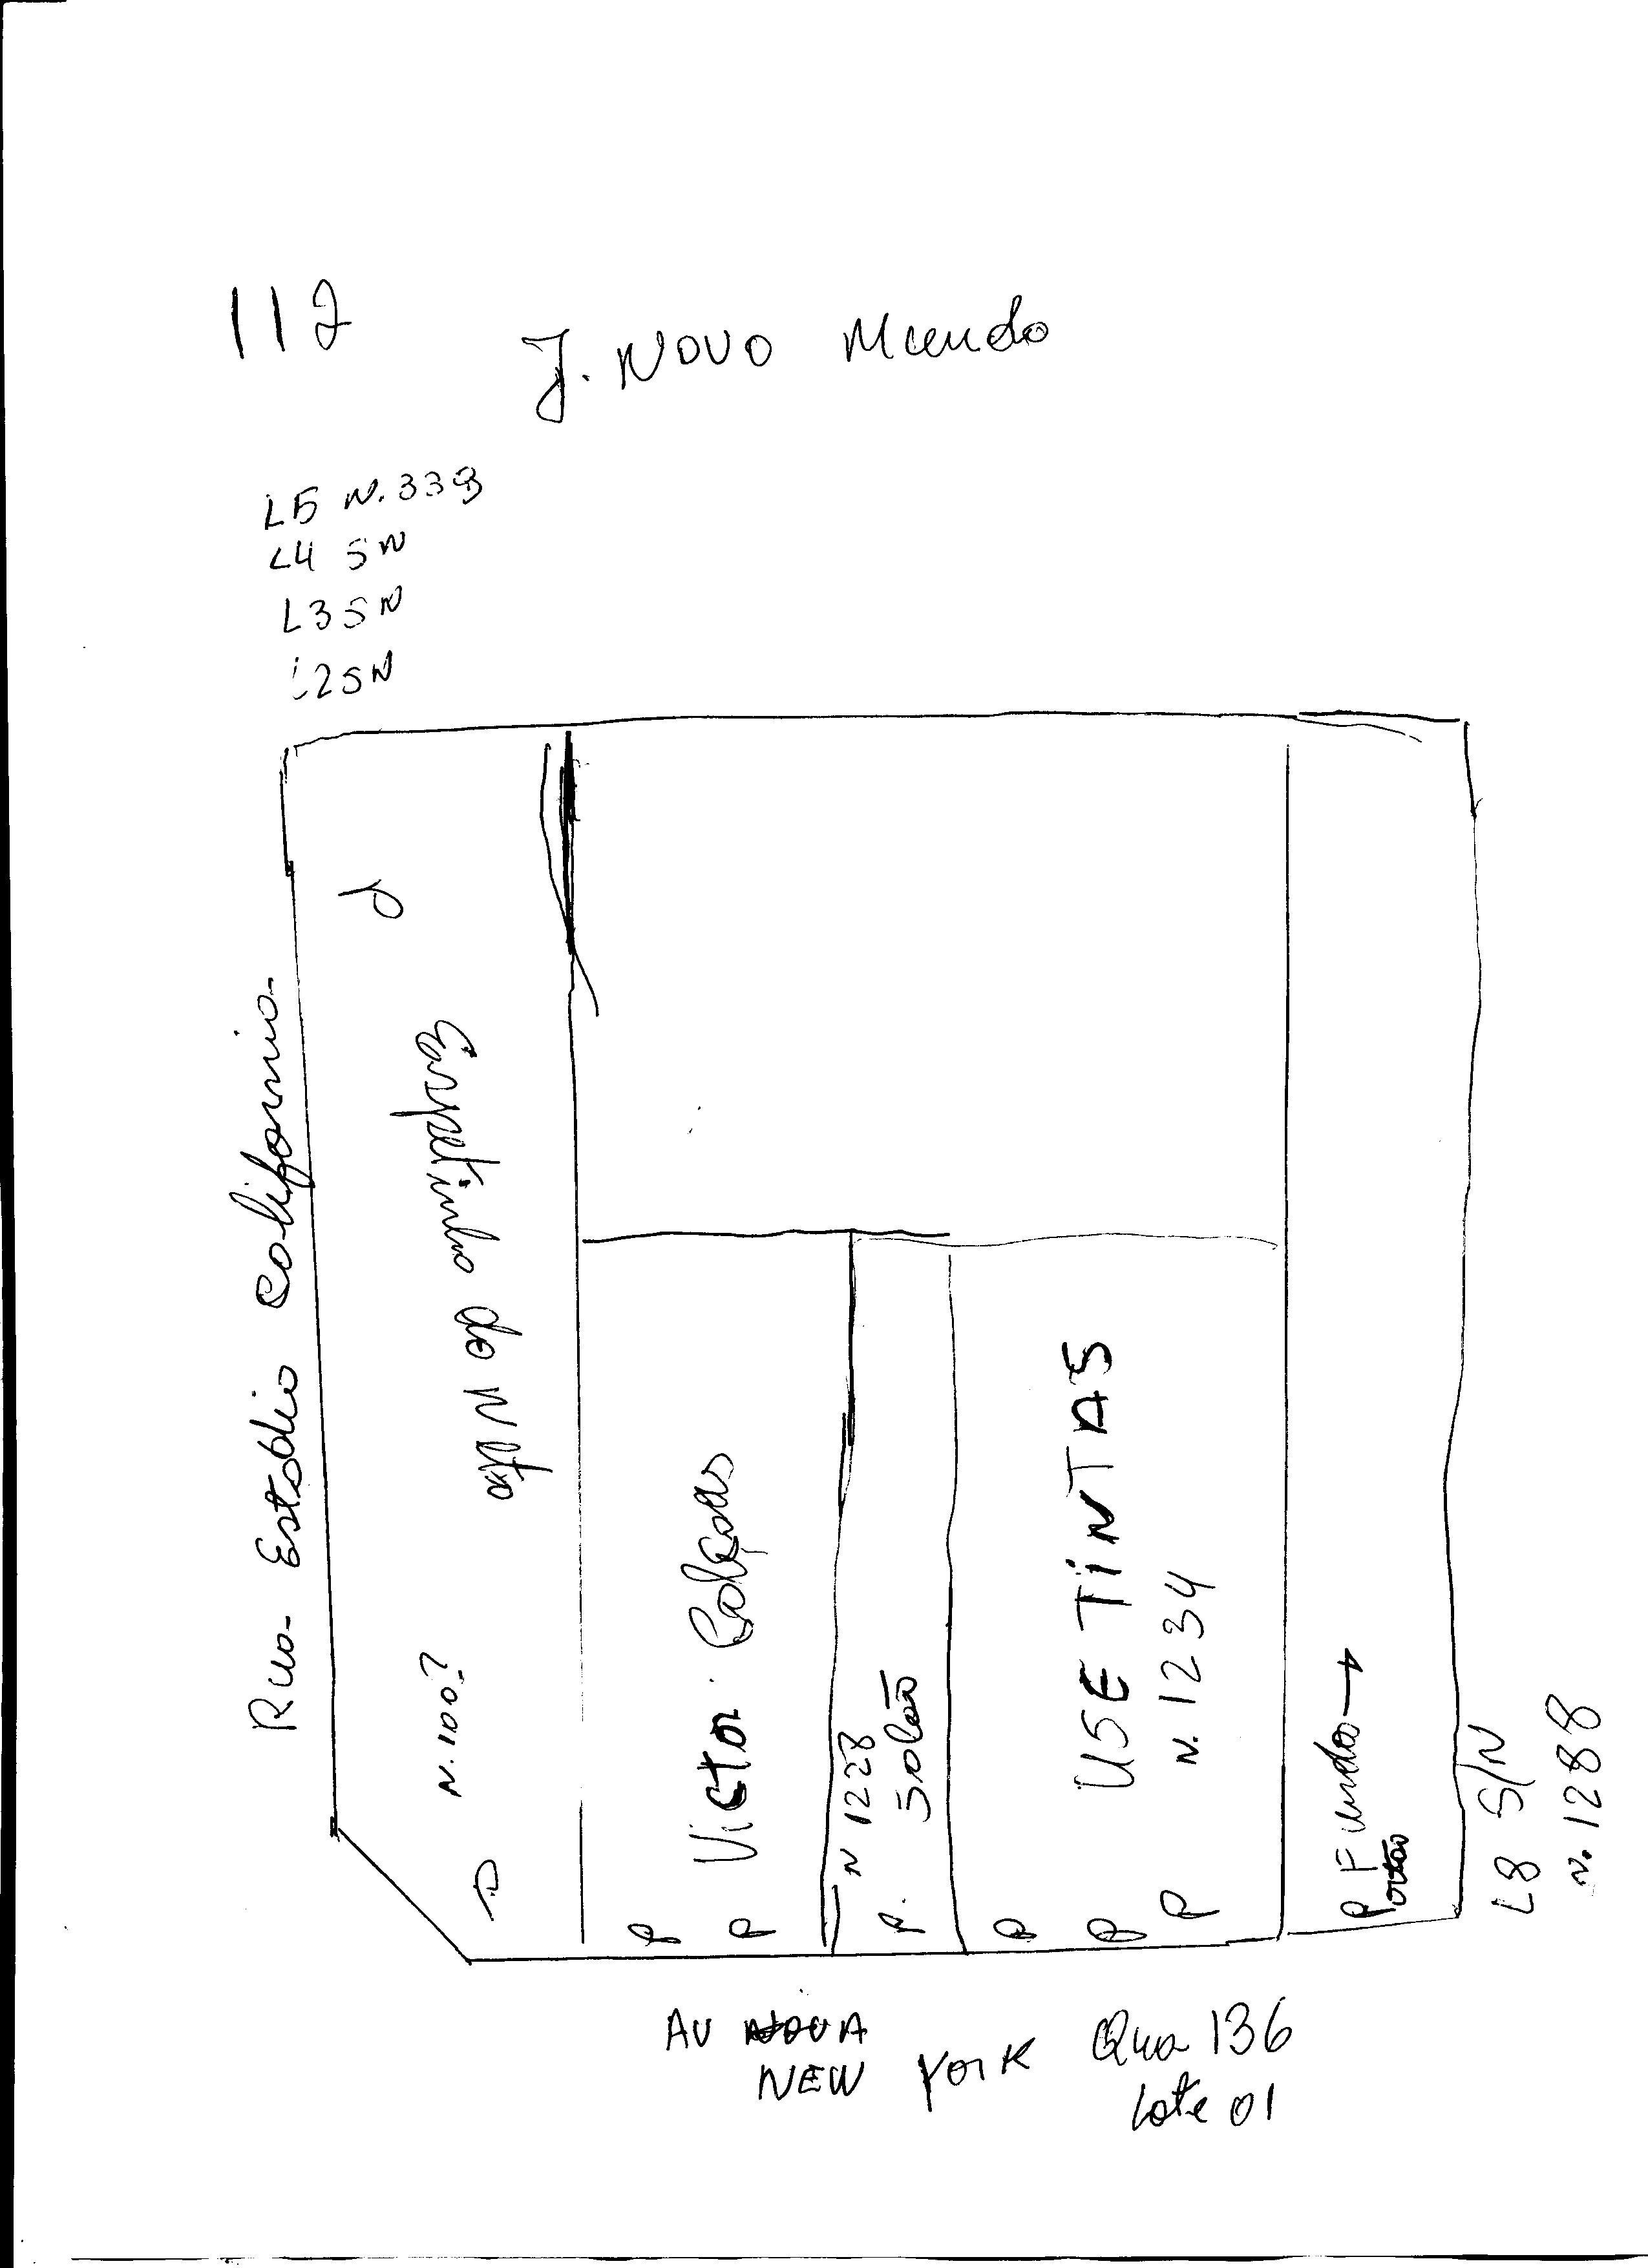 112
J. NOVO Mundo
L5 N. 339
L4 SN
L3 SN
L2 SN
Rua Estádio California
P
Espetinho do Neto
N. 100?
P
Victor Calças
P
P
N 1228
Salão
P.
USE TINTAS
N. 1234
P
P
P
Fundo
Portão
L8 S/N
N. 1288
AV NOVA
NEW York Qua 136
Lote 01